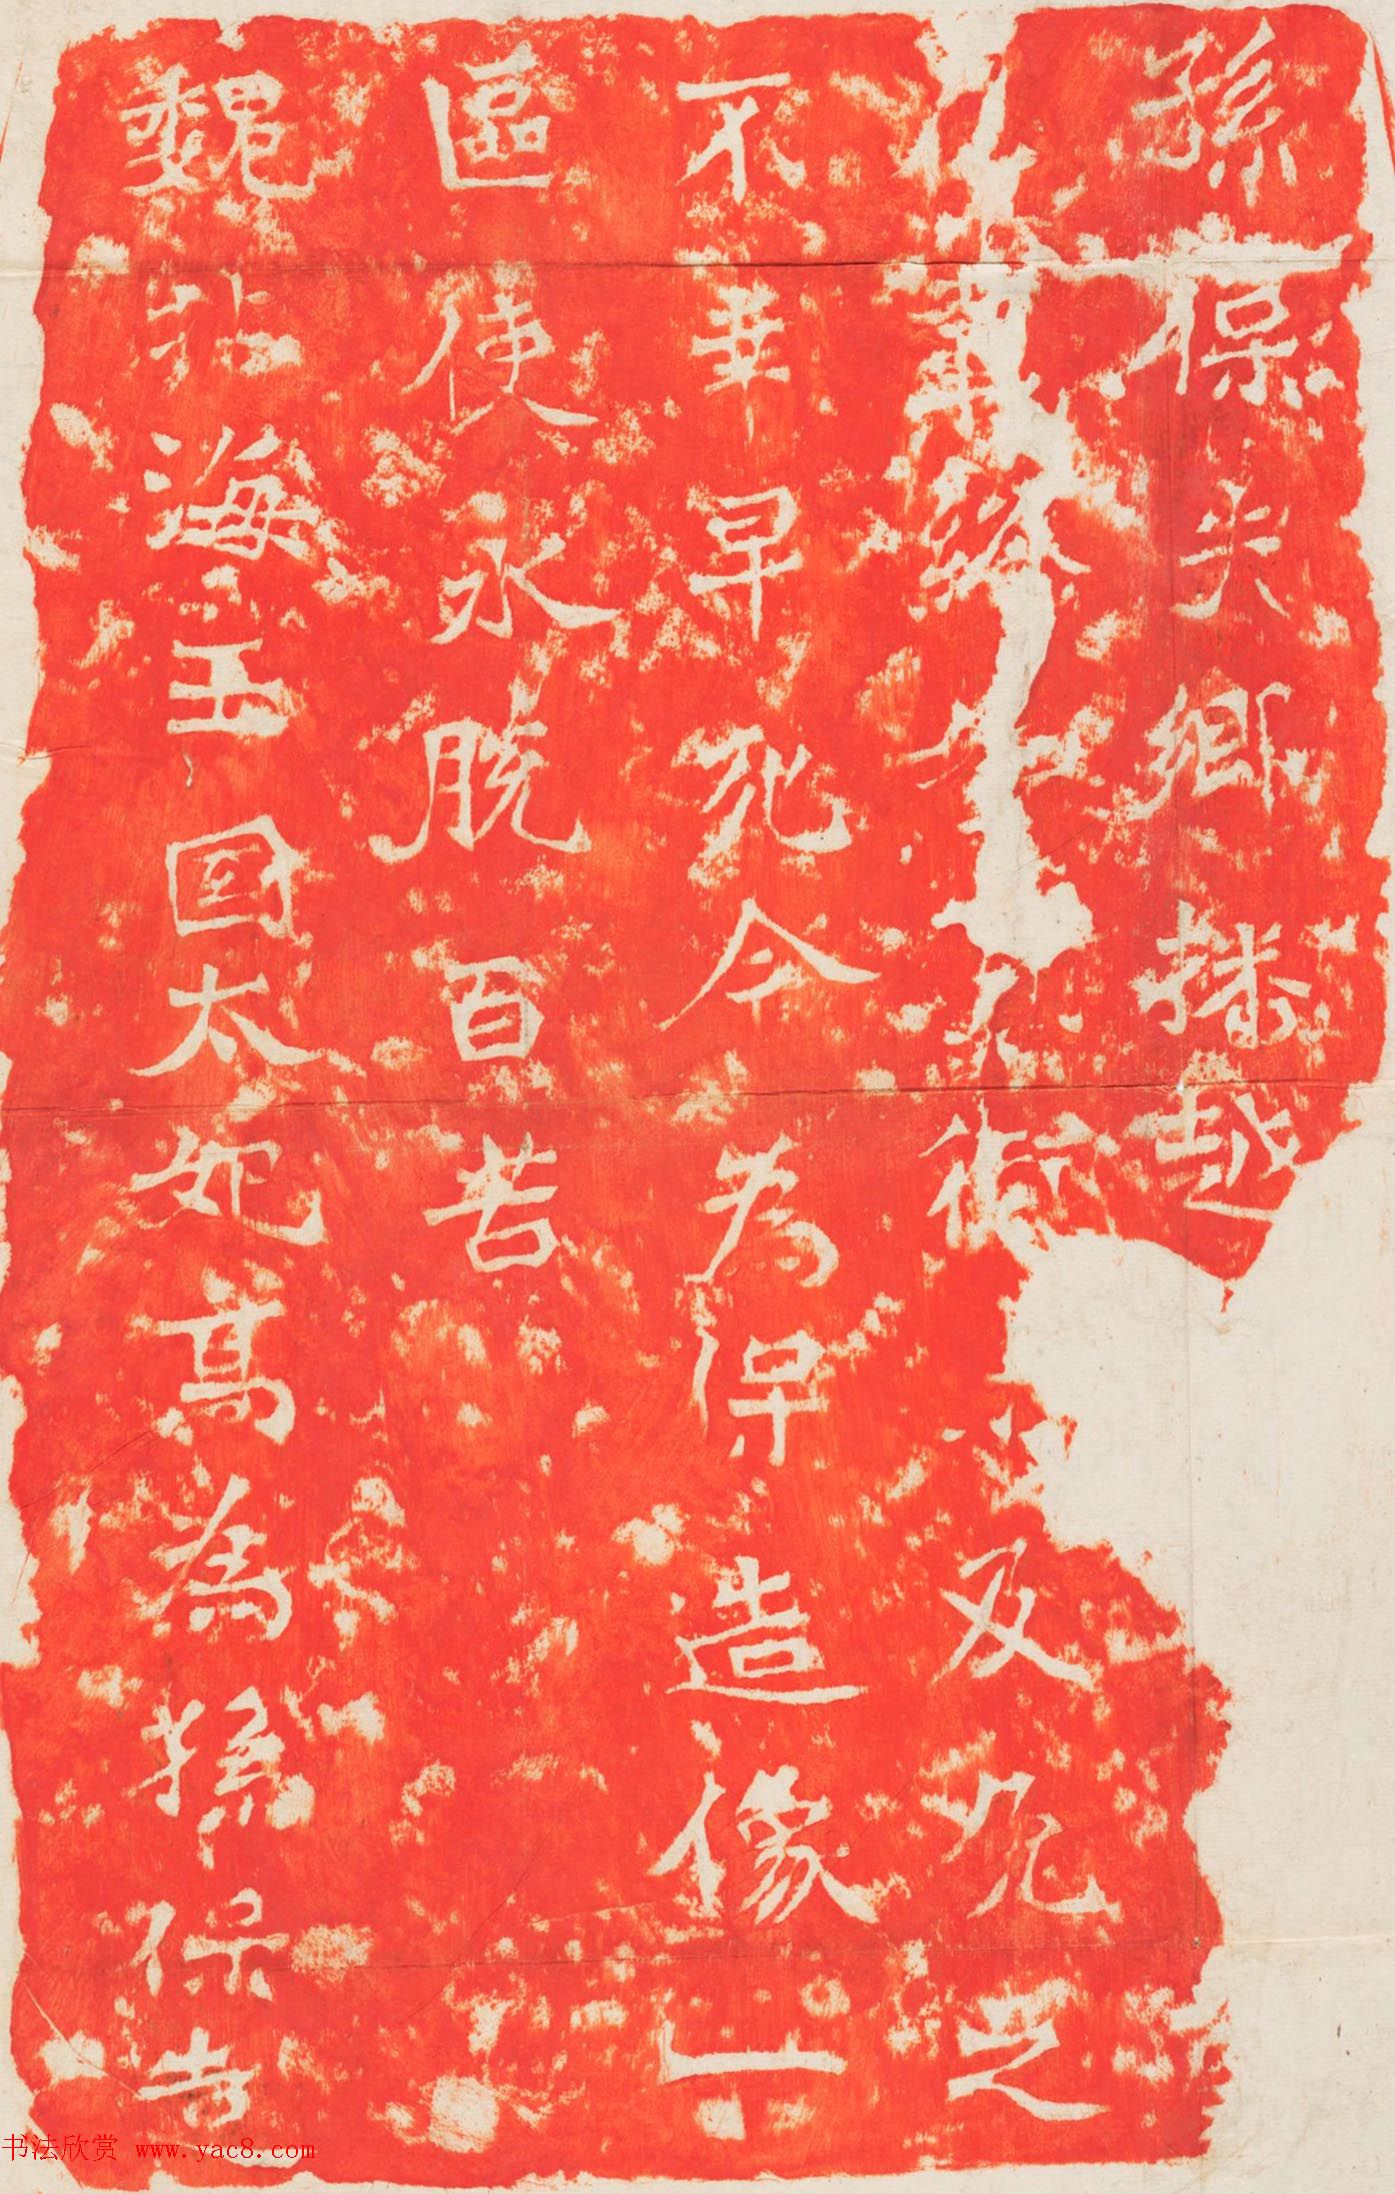 孫保失鄉播越
及兒之
不幸早死今為保造像一
區使永脫百苦
魏北海王国太妃高為孫保造
书法欣赏 www.yac8.com